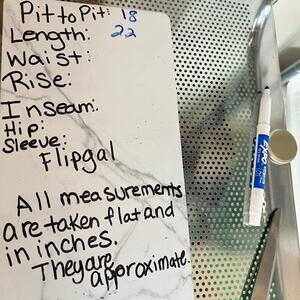 Pit to Pit: 18
Length: 22
Waist:
Rise:
Inseam:
Hip:
Sleeve:
Flipgal
All measurements
are taken flat and
in inches.
They are approximate.
EXPO